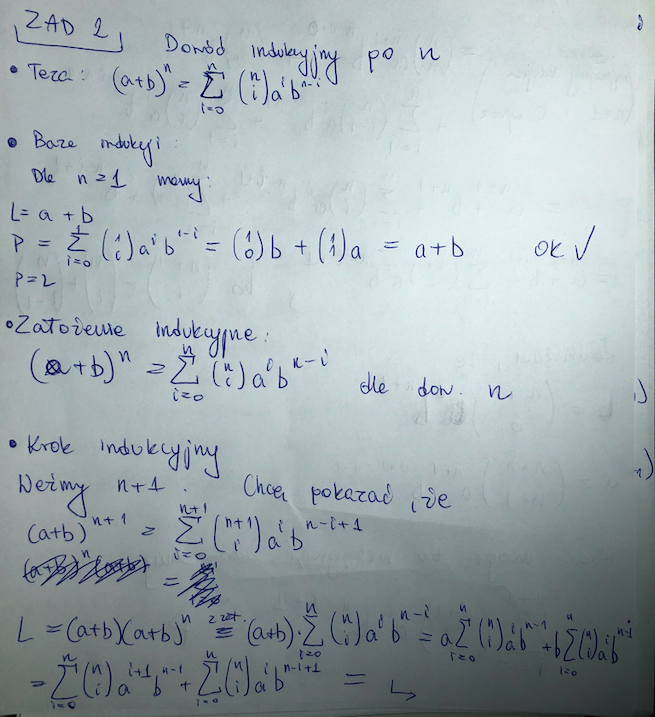 ZAD 2
Dowód indukcyjny po n
• Teza: (a+b)^n = ∑_{i=0}^{n} (n i) a^i b^{n-i}
• Baza indukcji:
Dla n=1 mamy:
L= a + b
P = ∑_{i=0}^{1} (1 i) a^i b^{1-i} = (1 0) b + (1 1) a = a+b OK ✓
P=L
• Założenie indukcyjne:
(a+b)^n = ∑_{i=0}^{n} (n i) a^i b^{n-i} dla dow. n
• Krok indukcyjny
Weźmy n+1. Chcę pokazać, że
(a+b)^{n+1} = ∑_{i=0}^{n+1} (n+1 i) a^i b^{n-i+1}
L = (a+b)(a+b)^n = z zał. (a+b)·∑_{i=0}^{n} (n i) a^i b^{n-i} = a∑_{i=0}^{n} (n i) a^i b^{n-i} + b∑_{i=0}^{n} (n i) a^i b^{n-i}
= ∑_{i=0}^{n} (n i) a^{i+1} b^{n-i} + ∑_{i=0}^{n} (n i) a^i b^{n-i+1} = ↳